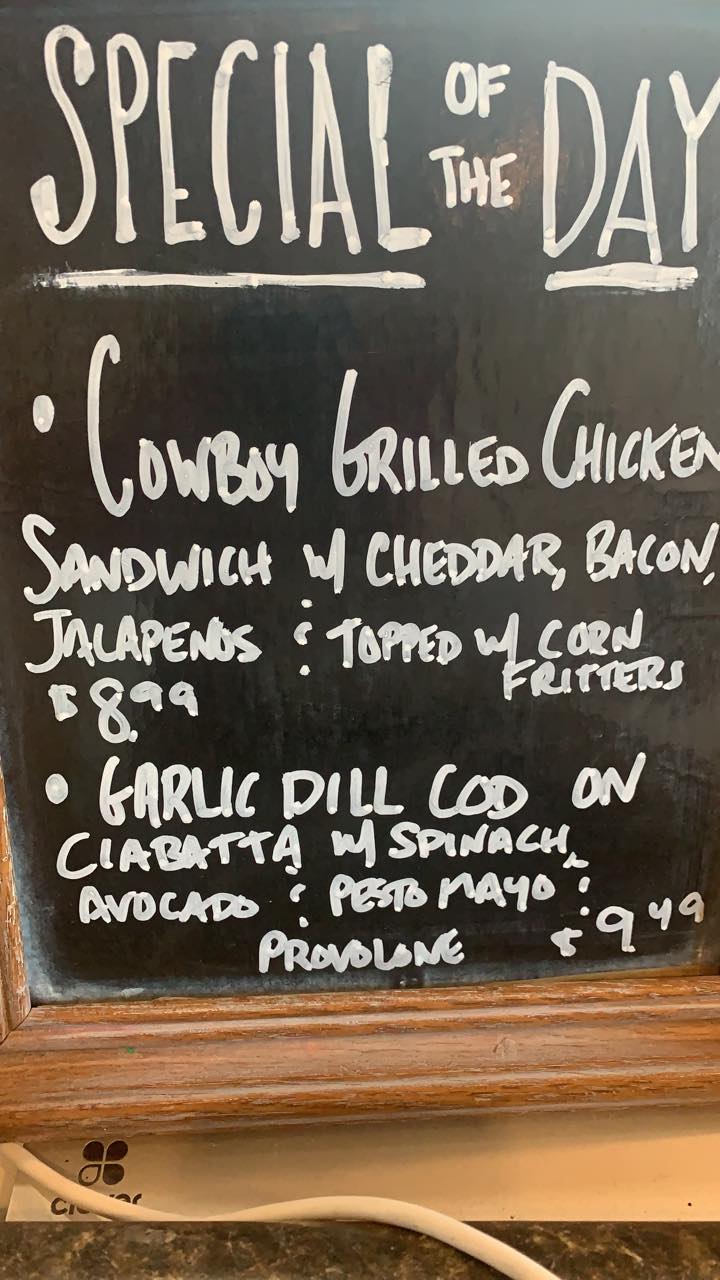 SPECIAL OF THE DAY
• COWBOY GRILLED CHICKEN
SANDWICH W/ CHEDDAR, BACON,
JALAPENOS & TOPPED W/ CORN
FRITTERS
$8.99
• GARLIC DILL COD ON
CIABATTA W/ SPINACH,
AVOCADO & PESTO MAYO &
PROVOLONE $9.49
clover